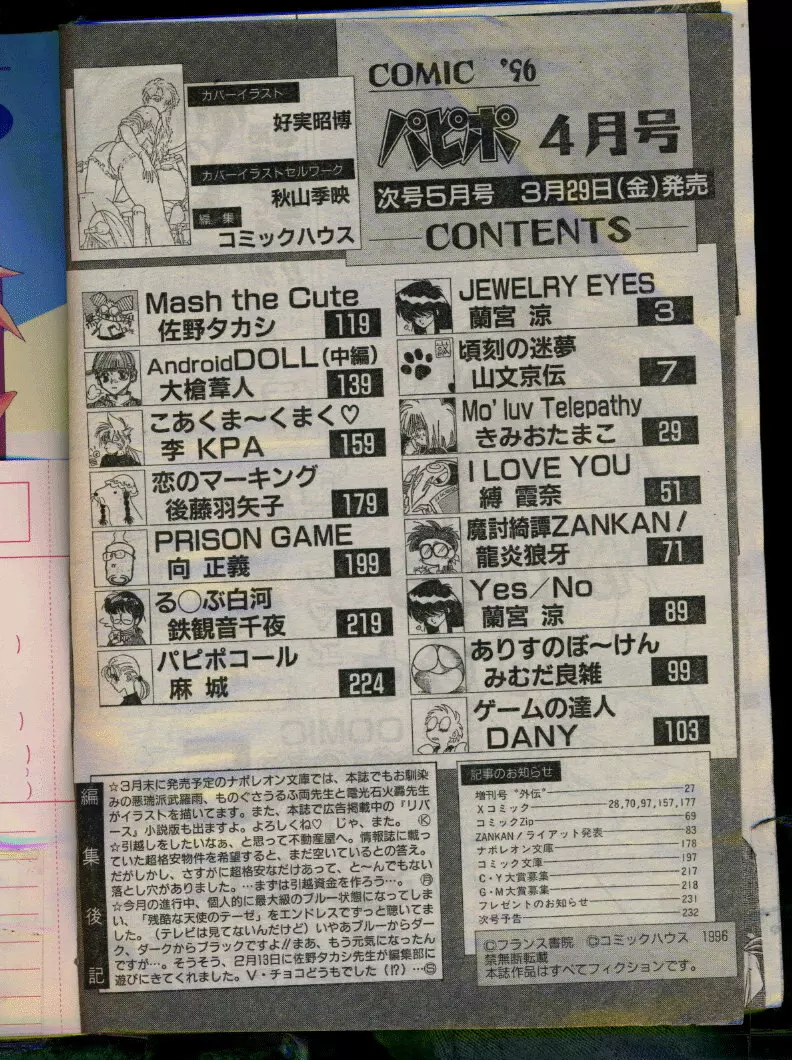 COMIC '96
パピポ 4月号
次号5月号 3月29日(金)発売
CONTENTS
カバーイラスト
好実昭博
カバーイラストセルワーク
秋山季映
編集
コミックハウス
JEWELRY EYES
蘭宮 涼 3
頃刻の迷夢
山文京伝 7
Mo' luv Telepathy
きみおたまこ 29
I LOVE YOU
縛 霞奈 51
魔討綺譚ZANKAN!
龍炎狼牙 71
Yes/No
蘭宮 涼 89
ありすのぼ〜けん
みむだ良雑 99
ゲームの達人
DANY 103
Mash the Cute
佐野タカシ 119
AndroidDOLL(中編)
大槍葦人 139
こあくま〜くまく♡
李 KPA 159
恋のマーキング
後藤羽矢子 179
PRISON GAME
向 正義 199
る○ぶ白河
鉄観音千夜 219
パピポコール
麻 城 224
編集後記
☆3月末に発売予定のナポレオン文庫では、本誌でもお馴染
みの悪瑞派武羅雨、ものぐさうるふ両先生と電光石火轟先生
がイラストを描いてます。また、本誌で広告掲載中の『リバ
ース』小説版も出ますよ。よろしくね♡ じゃ、また。 Ⓚ
☆引越しをしたいなぁ、と思って不動産屋へ。情報誌に載っ
ていた超格安物件を希望すると、まだ空いているとの答え。
だがしかし、さすがに超格安なだけあって、と〜んでもない
落とし穴がありました。…まずは引越資金を作ろう…。 ㊊
☆今月の進行中、個人的に最大級のブルー状態になってしま
い、「残酷な天使のテーゼ」をエンドレスでずっと聴いてま
した。(テレビは見てないんだけど)いやあブルーからダー
ク、ダークからブラックですよ!!まあ、もう元気になったん
ですが…。そうそう、2月13日に佐野タカシ先生が編集部に
遊びにきてくれました。V・チョコどうもでした(!?)…Ⓢ
記事のお知らせ
増刊号“外伝” 27
Xコミック 28,70,97,157,177
コミックZip 69
ZANKAN!ライアット発表 83
ナポレオン文庫 178
コミック文庫 197
C・Y大賞募集 217
G・M大賞募集 218
プレゼントのお知らせ 231
次号予告 232
©フランス書院 ©コミックハウス 1996
禁無断転載
本誌作品はすべてフィクションです。